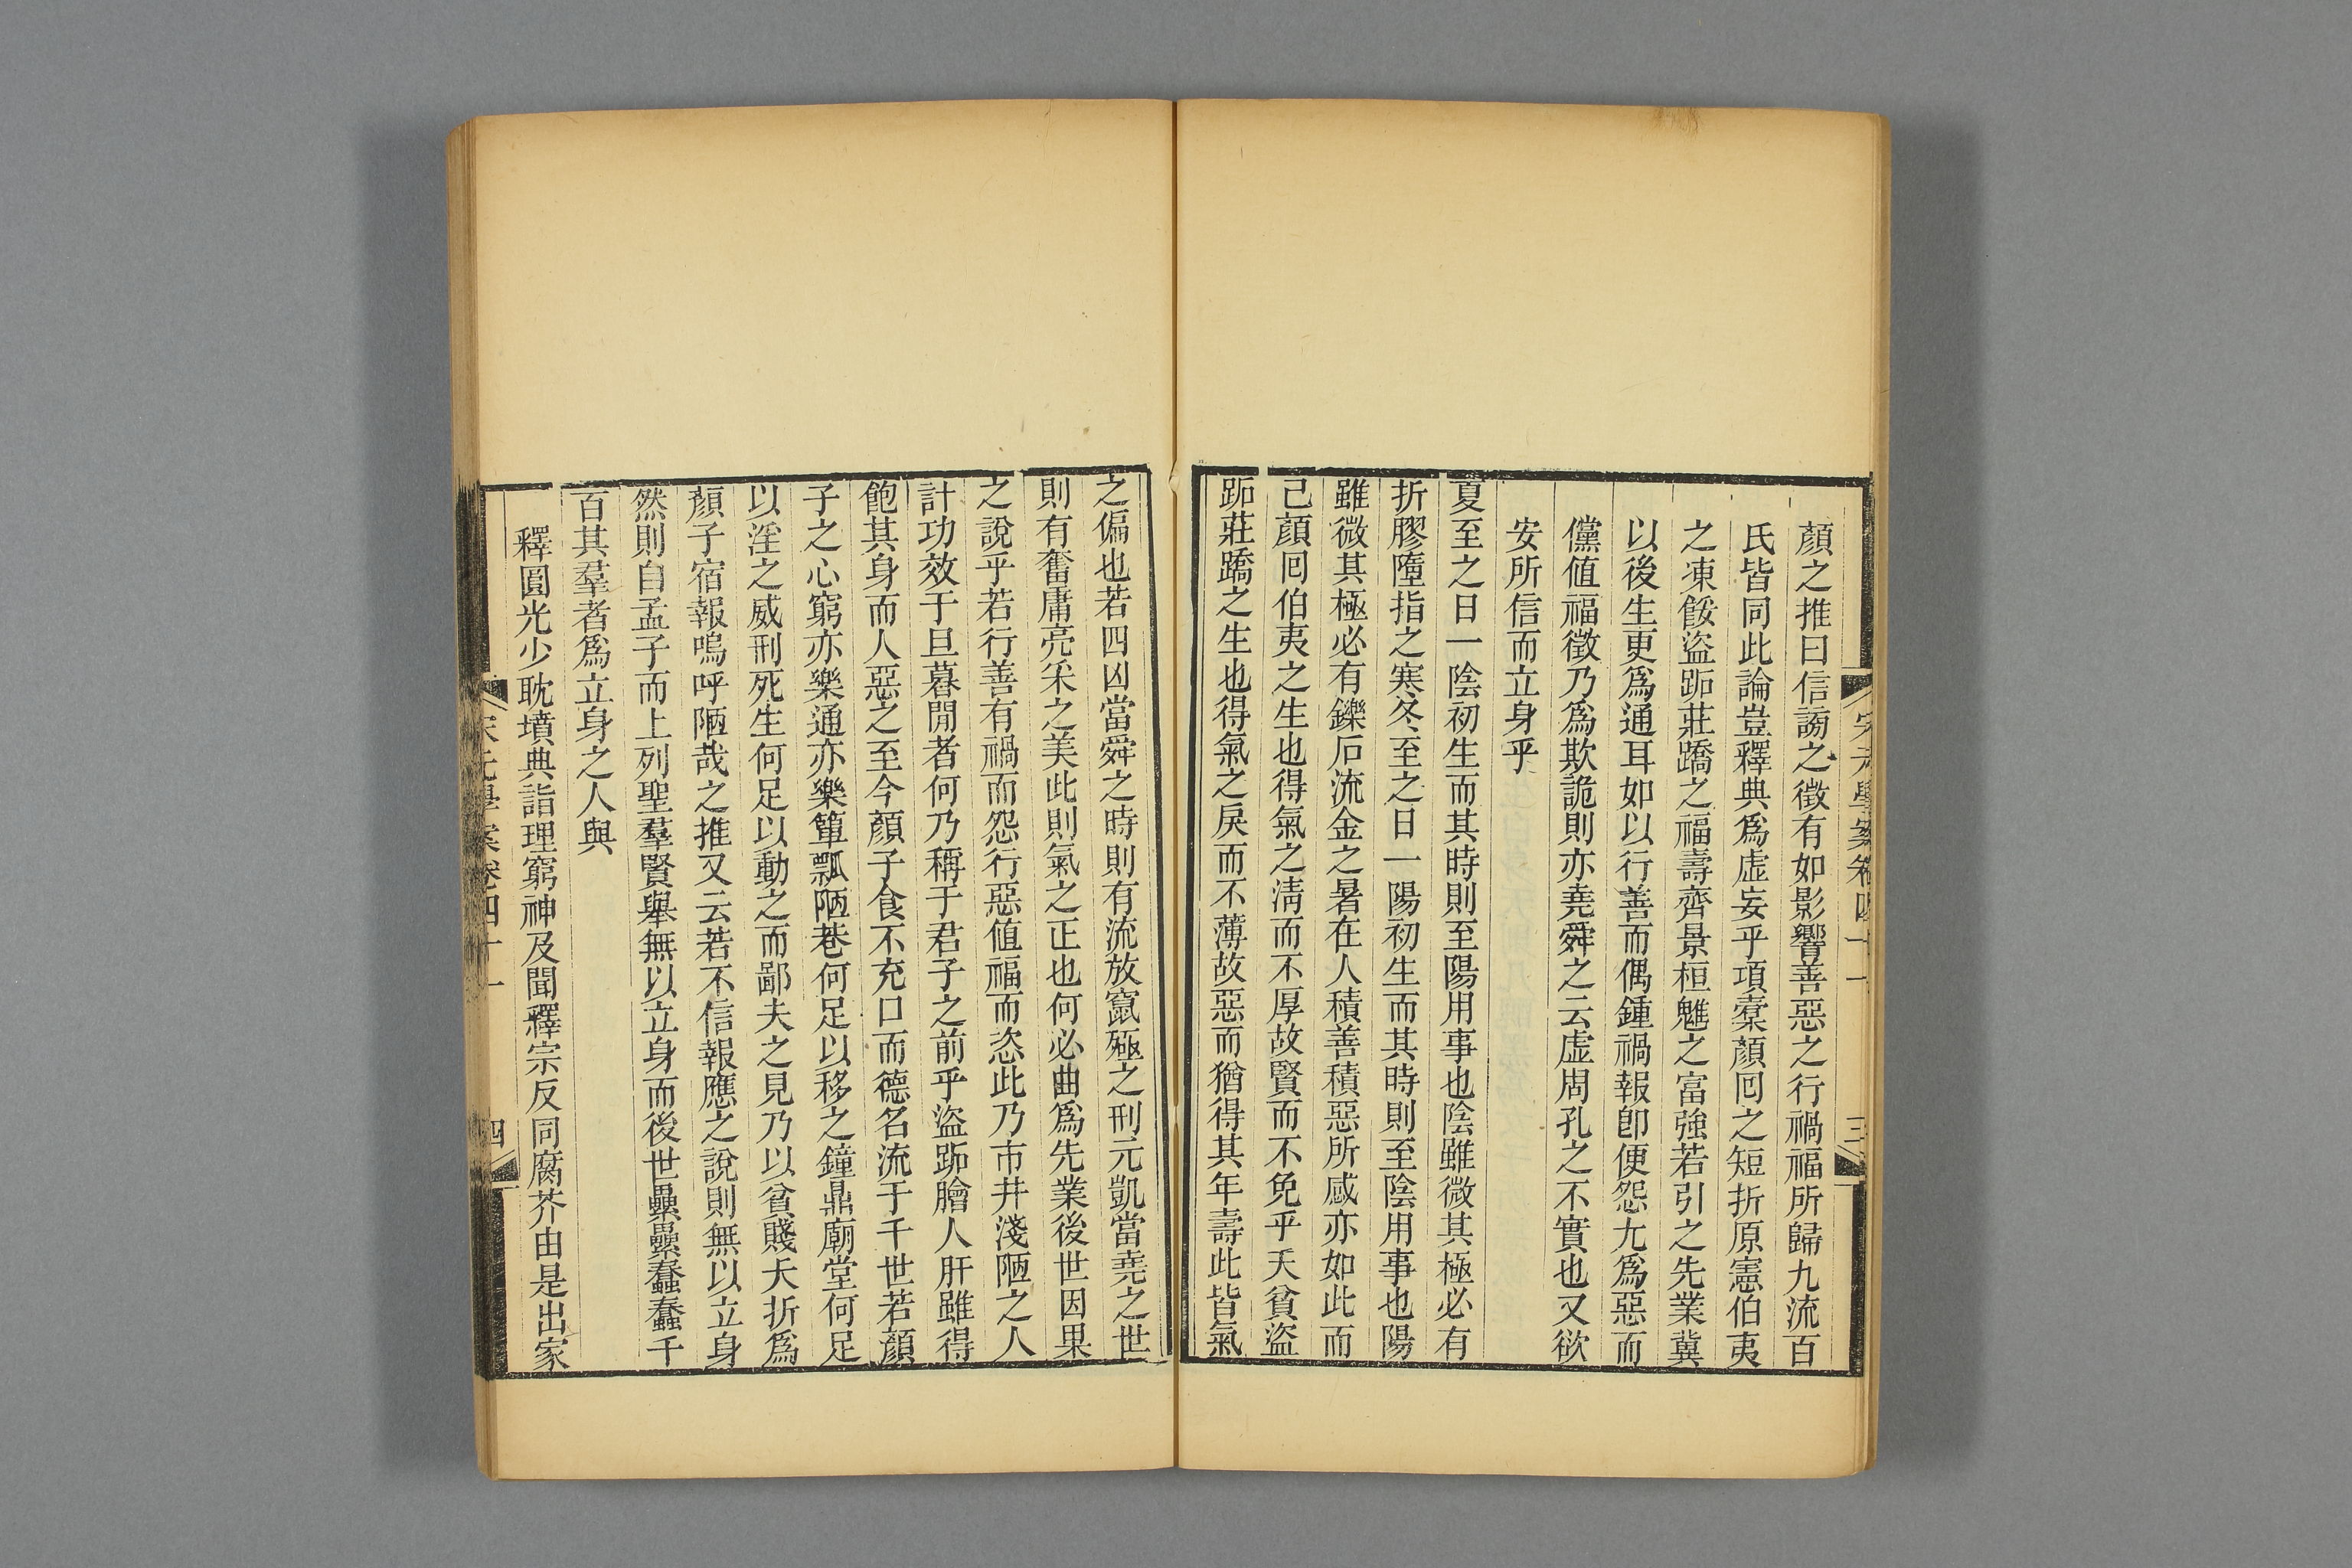 宋元學案卷四十一
三
顏之推曰信謗之徵有如影響善惡之行禍福所歸九流百
氏皆同此論豈釋典爲虛妄乎項橐顏囘之短折原憲伯夷
之凍餒盜跖莊蹻之福壽齊景桓魋之富強若引之先業冀
以後生更爲通耳如以行善而偶鍾禍報卽便怨尤爲惡而
儻値福徵乃爲欺詭則亦堯舜之云虛周孔之不實也又欲
安所信而立身乎
夏至之日一陰初生而其時則至陽用事也陰雖微其極必有
折膠墮指之寒冬至之日一陽初生而其時則至陰用事也陽
雖微其極必有鑠石流金之暑在人積善積惡所感亦如此而
己顏囘伯夷之生也得氣之淸而不厚故賢而不免乎夭貧盜
跖莊蹻之生也得氣之戾而不薄故惡而猶得其年壽此皆氣
之偏也若四凶當舜之時則有流放竄殛之刑元凱當堯之世
則有奮庸亮采之美此則氣之正也何必曲爲先業後世因果
之說乎若行善有禍而怨行惡値福而恣此乃市井淺陋之人
計功效于旦暮閒者何乃稱于君子之前乎盜跖膾人肝雖得
飽其身而人惡之至今顏子食不充口而德名流于千世若顏
子之心窮亦樂通亦樂簞瓢陋巷何足以移之鐘鼎廟堂何足
以淫之威刑死生何足以動之而鄙夫之見乃以貧賤夭折爲
顏子宿報嗚呼陋哉之推又云若不信報應之說則無以立身
然則自孟子而上列聖羣賢舉無以立身而後世纍纍蠢蠢千
百其羣者爲立身之人與
釋圓光少耽墳典詣理窮神及聞釋宗反同腐芥由是出家
宋元學案卷四十一
四